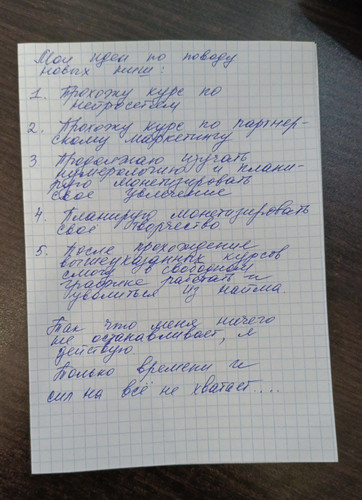 Мои идеи по поводу
новых ниш:
1. Прохожу курс по
нейросетям
2. Прохожу курс по партнер-
скому маркетингу
3. Продолжаю изучать
нумерологию и плани-
рую монетизировать
свое увлечение
4. Планирую монетизировать
свое творчество
5. После прохождение
вышеуказанных курсов
смогу в свободном
графике работать и
уволиться из найма.
Так что меня ничего
не останавливает, я
действую.
Только времени и
сил на всё не хватает....